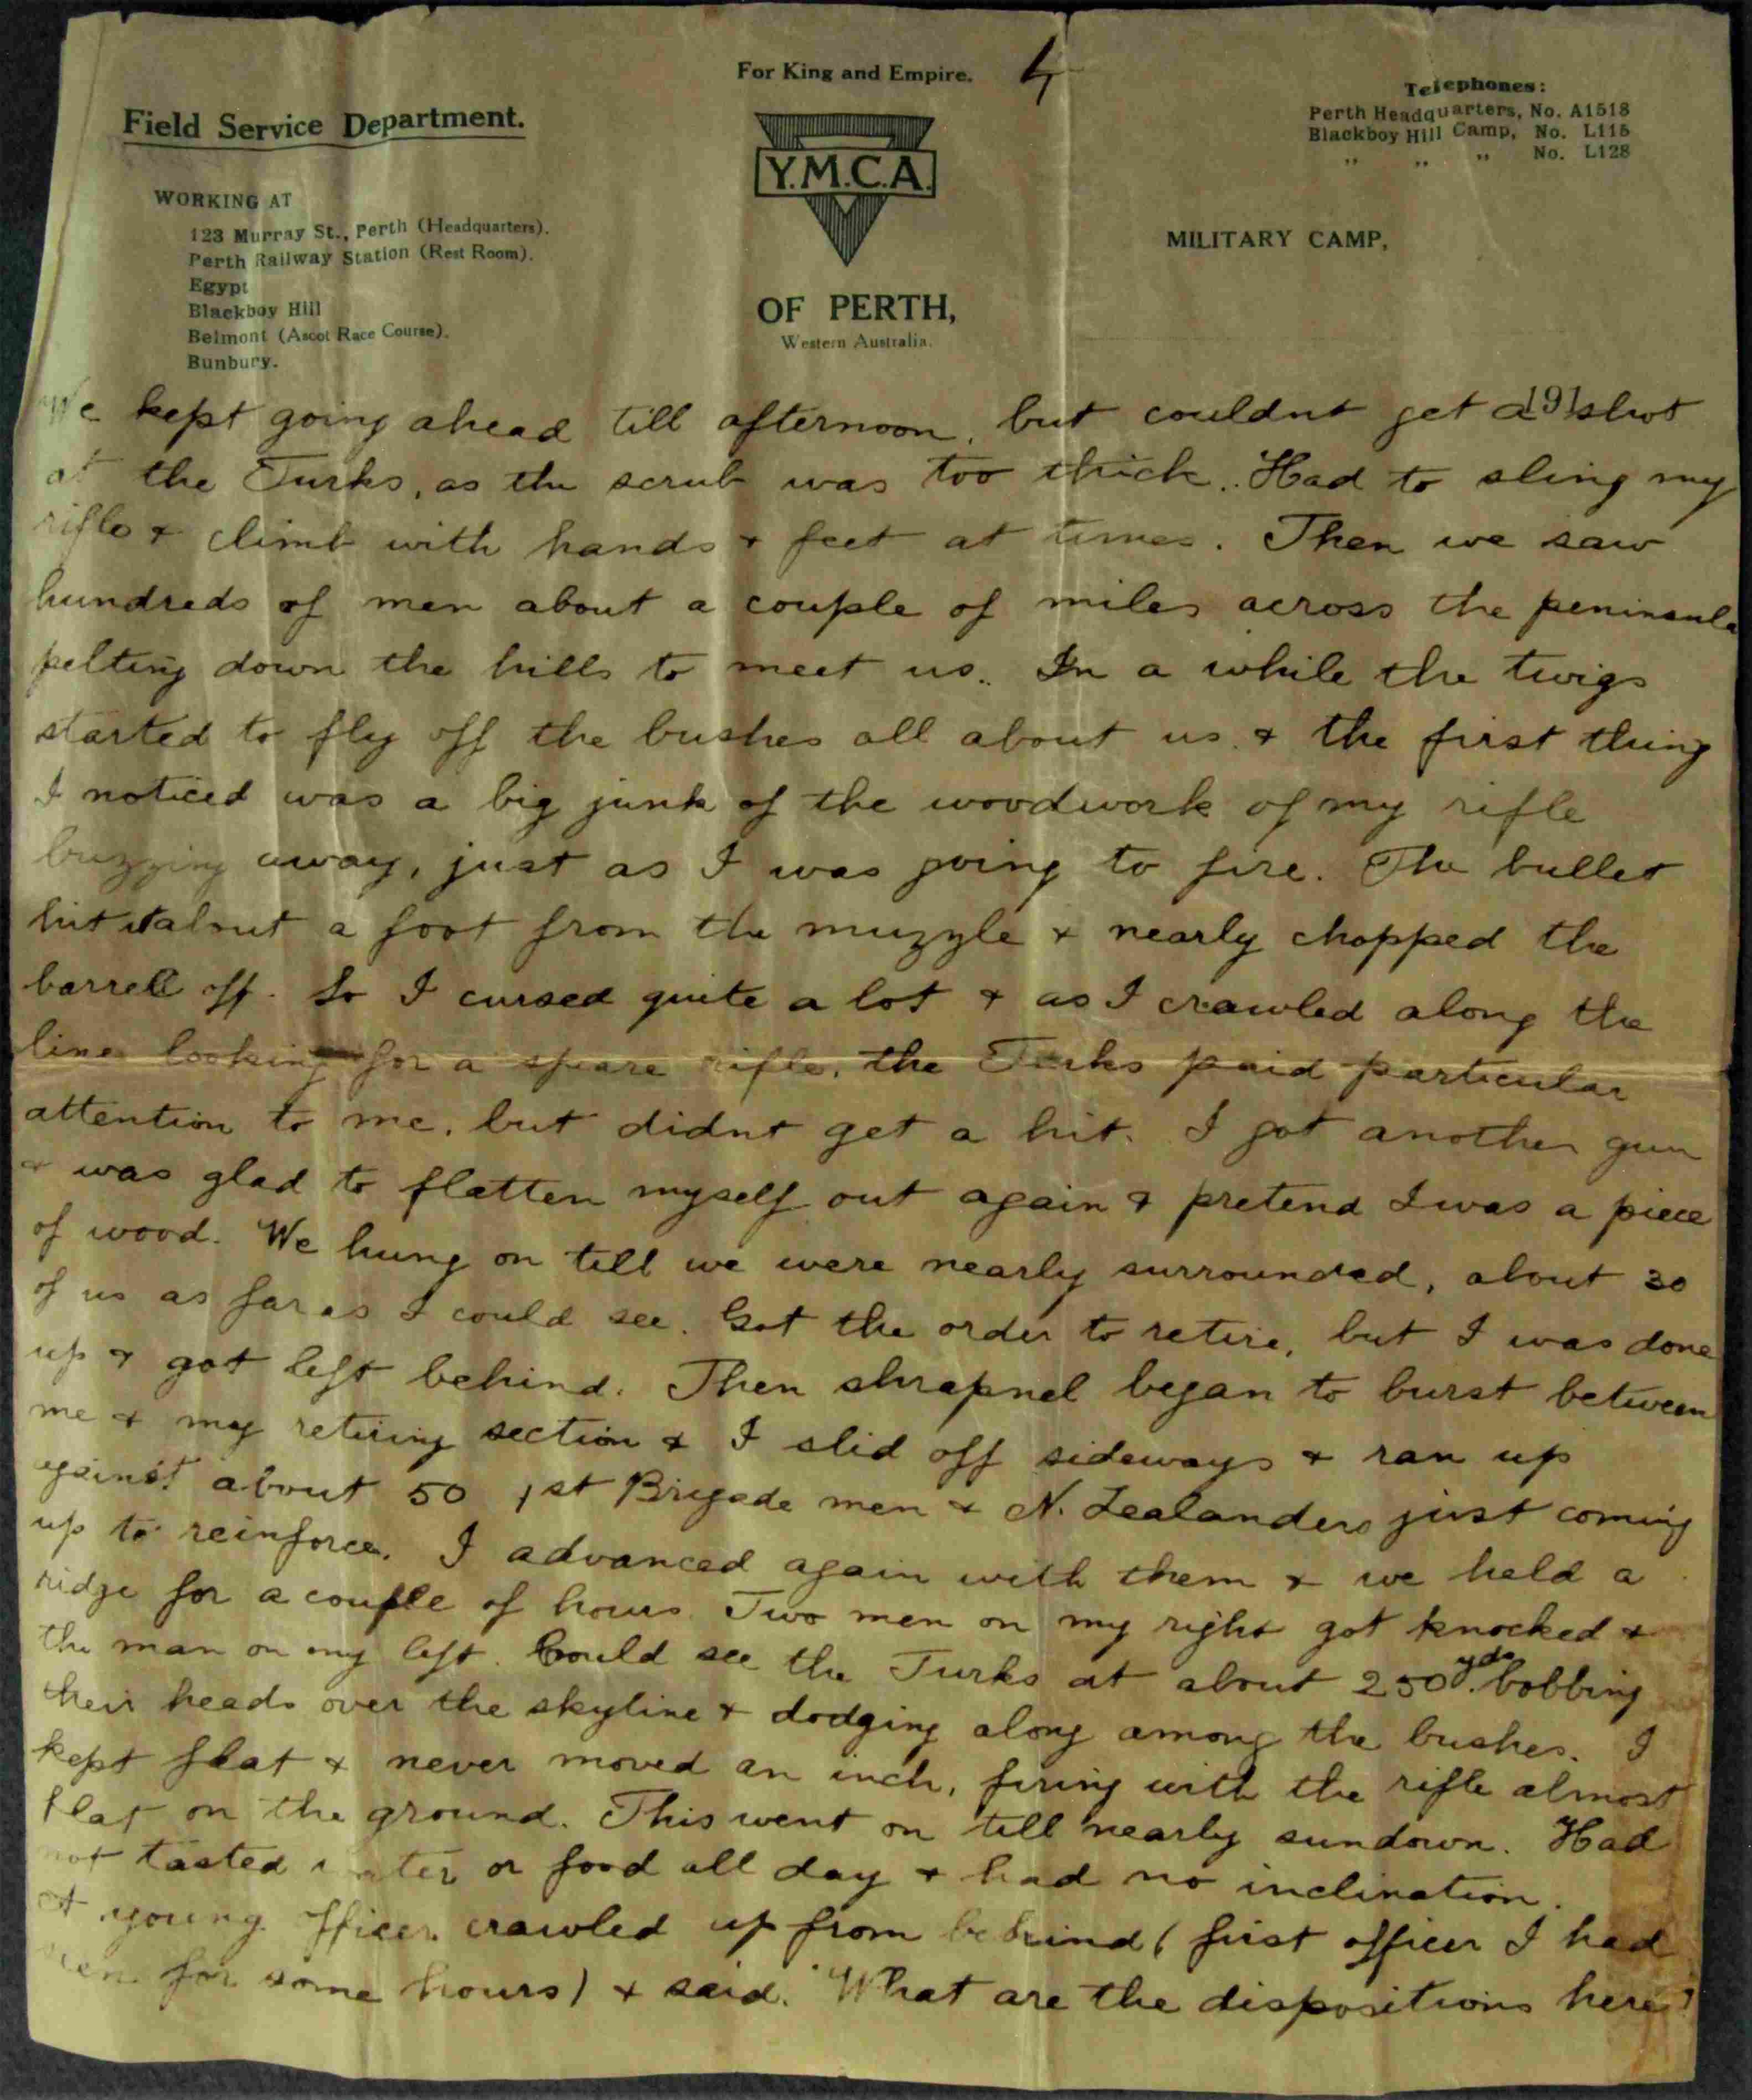 For King and Empire. 4
Field Service Department.
Telephones:
Perth Headquarters, No. A1518
Blackboy Hill Camp, No. L115
" " " No. L128
Y.M.C.A.
WORKING AT
123 Murray St., Perth (Headquarters).
Perth Railway Station (Rest Room).
Egypt
Blackboy Hill
Belmont (Ascot Race Course).
Bunbury.
MILITARY CAMP,
OF PERTH,
Western Australia.
191
We kept going ahead till afternoon, but couldnt get a shot
at the Turks, as the scrub was too thick. Had to sling my
rifle & climb with hands & feet at times. Then we saw
hundreds of men about a couple of miles across the peninsula
pelting down the hills to meet us. In a while the twigs
started to fly off the bushes all about us & the first thing
I noticed was a big junk of the woodwork of my rifle
buzzing away, just as I was going to fire. The bullet
hit it about a foot from the muzzle & nearly chopped the
barrell off. So I cursed quite a lot & as I crawled along the
line looking for a spare rifle, the Turks paid particular
attention to me, but didnt get a hit. I got another gun
& was glad to flatten myself out again & pretend I was a piece
of wood. We hung on till we were nearly surrounded, about 30
of us as far as I could see. Got the order to retire, but I was done
up & got left behind. Then shrapnel began to burst between
me & my retiring section & I slid off sideways & ran up
against about 50 1st Brigade men & N. Zealanders just coming
up to reinforce. I advanced again with them & we held a
ridge for a couple of hours. Two men on my right got knocked &
the man on my left. Could see the Turks at about 250 yds. bobbing
their heads over the skyline & dodging along among the bushes. I
kept flat & never moved an inch, firing with the rifle almost
flat on the ground. This went on till nearly sundown. Had
not tasted water or food all day & had no inclination.
A young officer crawled up from behind (first officer I had
seen for some hours) & said. "What are the dispositions here?